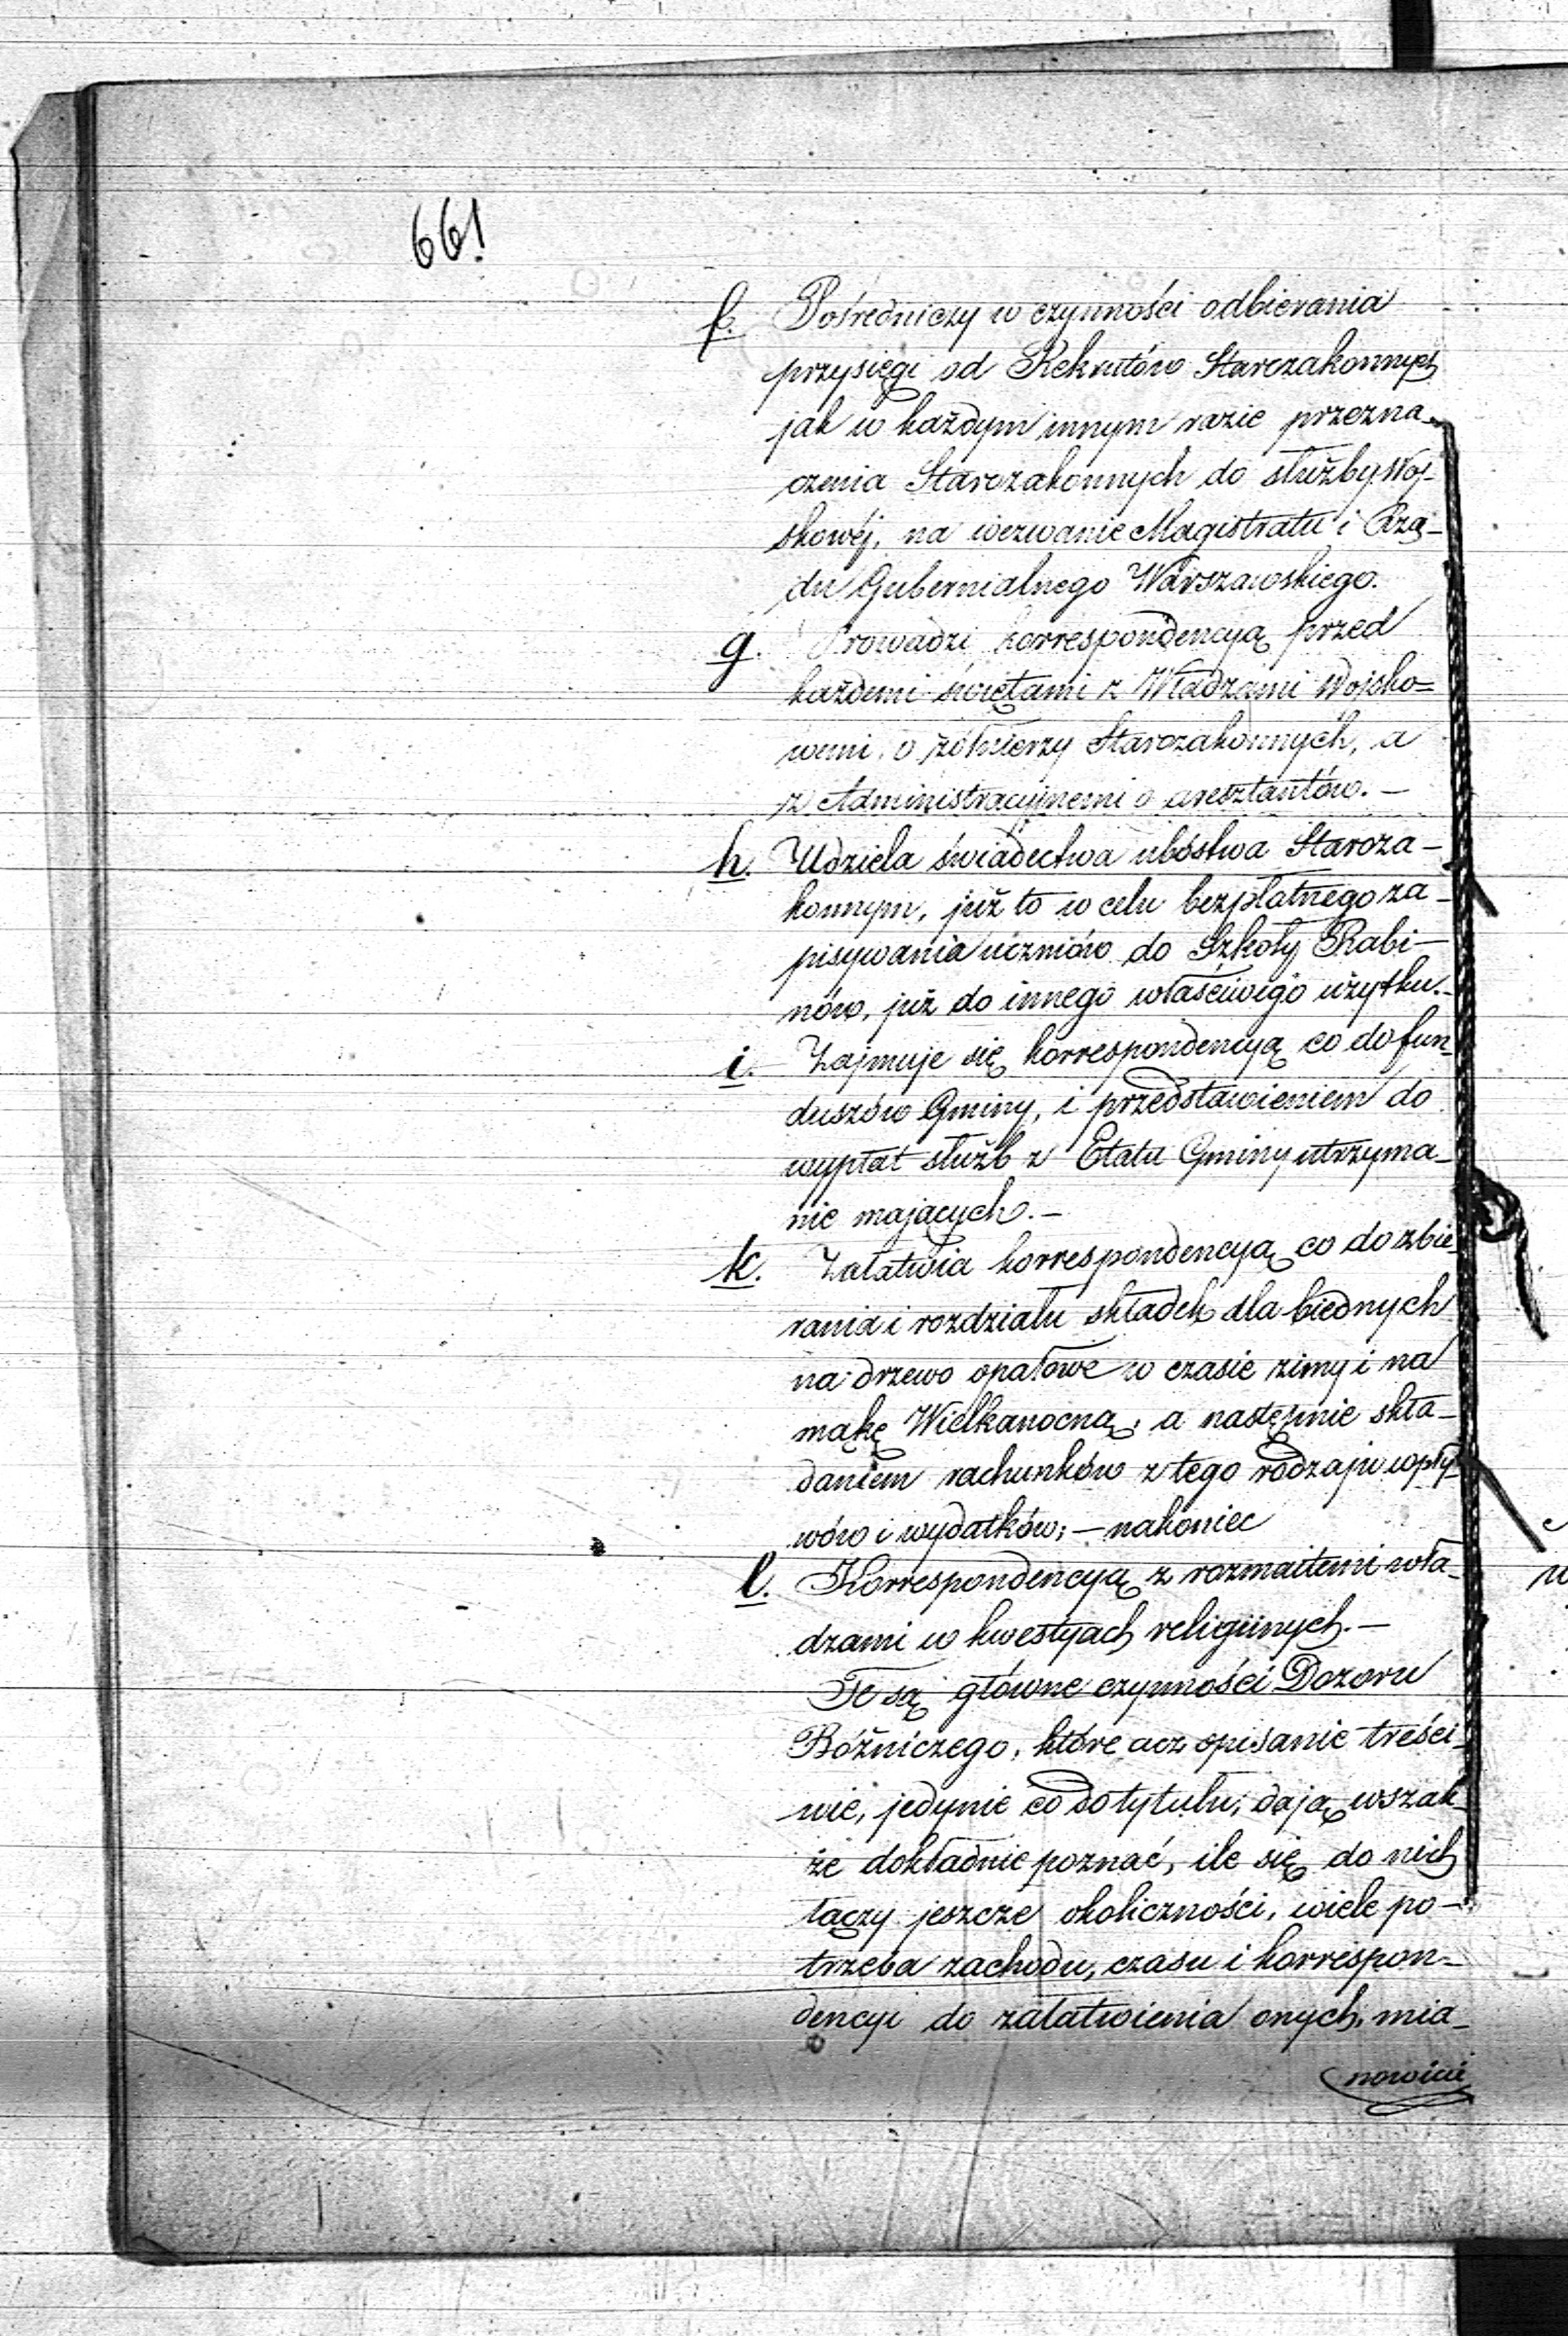 661
f. Pośredniczy w czynności odbierania
przysięgi od Rekrutów Starozakonnych
jak w każdym innym razie przezna-
czenia Starozakonnych do służby Woj-
skowéj, na wezwanie Magistratu i Rzą-
du Gubernialnego Warszawskiego.
g. Prowadzi korrespondencyą przed
każdemi świętami z Władzami Wojsko=
wemi o żółnierzy Starozakonnych, a
z Administracyjnemi o aresztantów. —
h. Udziela świadectwa ubóstwa Staroza-
konnym, już to w celu bezpłatnego za-
pisywania uczniów do Szkoły Rabi-
nów, już do innego właściwego użytku. -
i. Zajmuje się korrespondencyą co do fun-
duszów Gminy, i przedstawieniem do
wypłat służb z Etatu Gminy utrzyma-
nie mających. —
k. Załatwia korrespondencyą co do zbie-
rania i rozdziału składek dla biednych
na drzewo opałowe w czasie zimy i na
mąkę Wielkanocną, a następnie skła-
daniem rachunków z tego rodzaju wpły-
wów i wydatków; — nakoniec
l. Korrespondencyą z rozmaitemi wła-
dzami w kwestyach religijnych. —
Te są główne czynności Dozoru
Bóżniczego, które acz opisanie treści-
wie, jedynie co do tytułu, dają wszak-
że dokładnie poznać, ile się do nich
łączy jeszcze okoliczności, wiele po-
trzeba zachodu, czasu i korrespon-
dencyi do załatwienia onych, mia-
nowicie